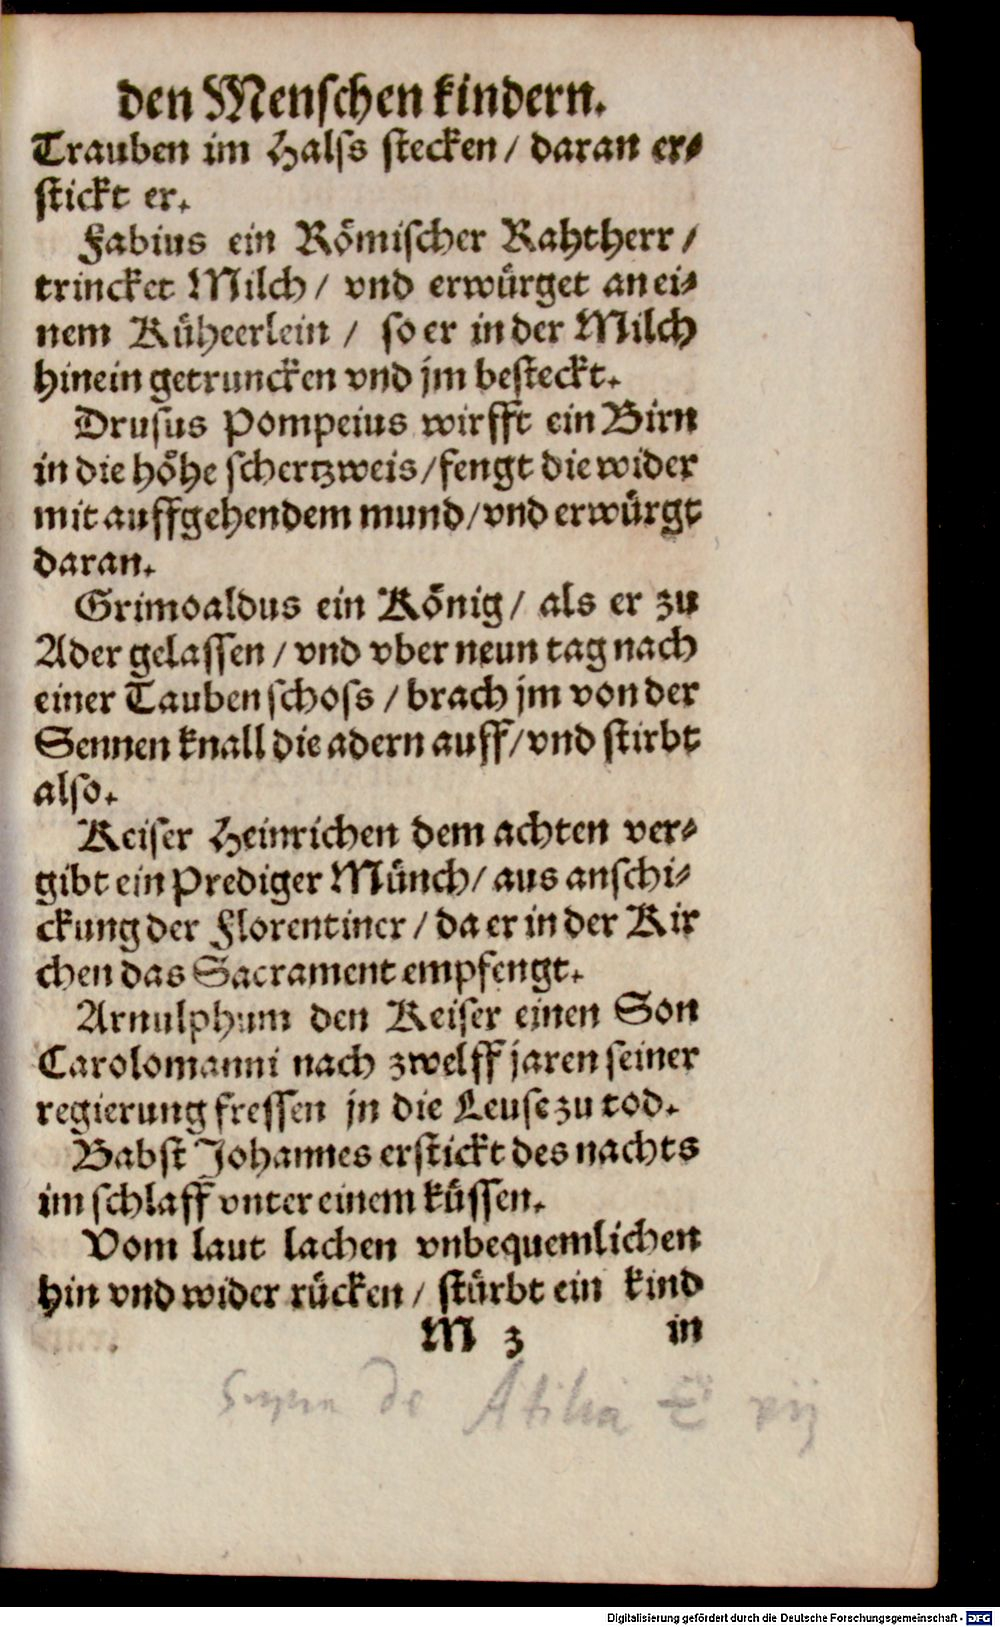 den Menschen kindern.
Trauben im Halss stecken / daran er⸗
stickt er.
Fabius ein Römischer Rahtherr /
trincket Milch / vnd erwürget an ei⸗
nem Küheerlein / so er in der Milch
hinein getruncken vnd jm besteckt.
Drusus Pompeius wirfft ein Birn
in die höhe schertzweis / fengt die wider
mit auffgehendem mund / vnd erwürgt
daran.
Grimoaldus ein König / als er zu
Ader gelassen / vnd vber neun tag nach
einer Tauben schoss / brach jm von der
Sennen knall die adern auff / vnd stirbt
also.
Keiser Heinrichen dem achten ver⸗
gibt ein Prediger Münch / aus anschi⸗
ckung der Florentiner / da er in der Kir
chen das Sacrament empfengt.
Arnulphum den Keiser einen Son
Carolomanni nach zwelff jaren seiner
regierung fressen jn die Leuse zu tod.
Babst Johannes erstickt des nachts
im schlaff vnter einem küssen.
Vom laut lachen vnbequemlichen
hin vnd wider rücken / stürbt ein kind
M 3 in
Supra de Atilia vij
Digitalisierung gefördert durch die Deutsche Forschungsgemeinschaft - DFG